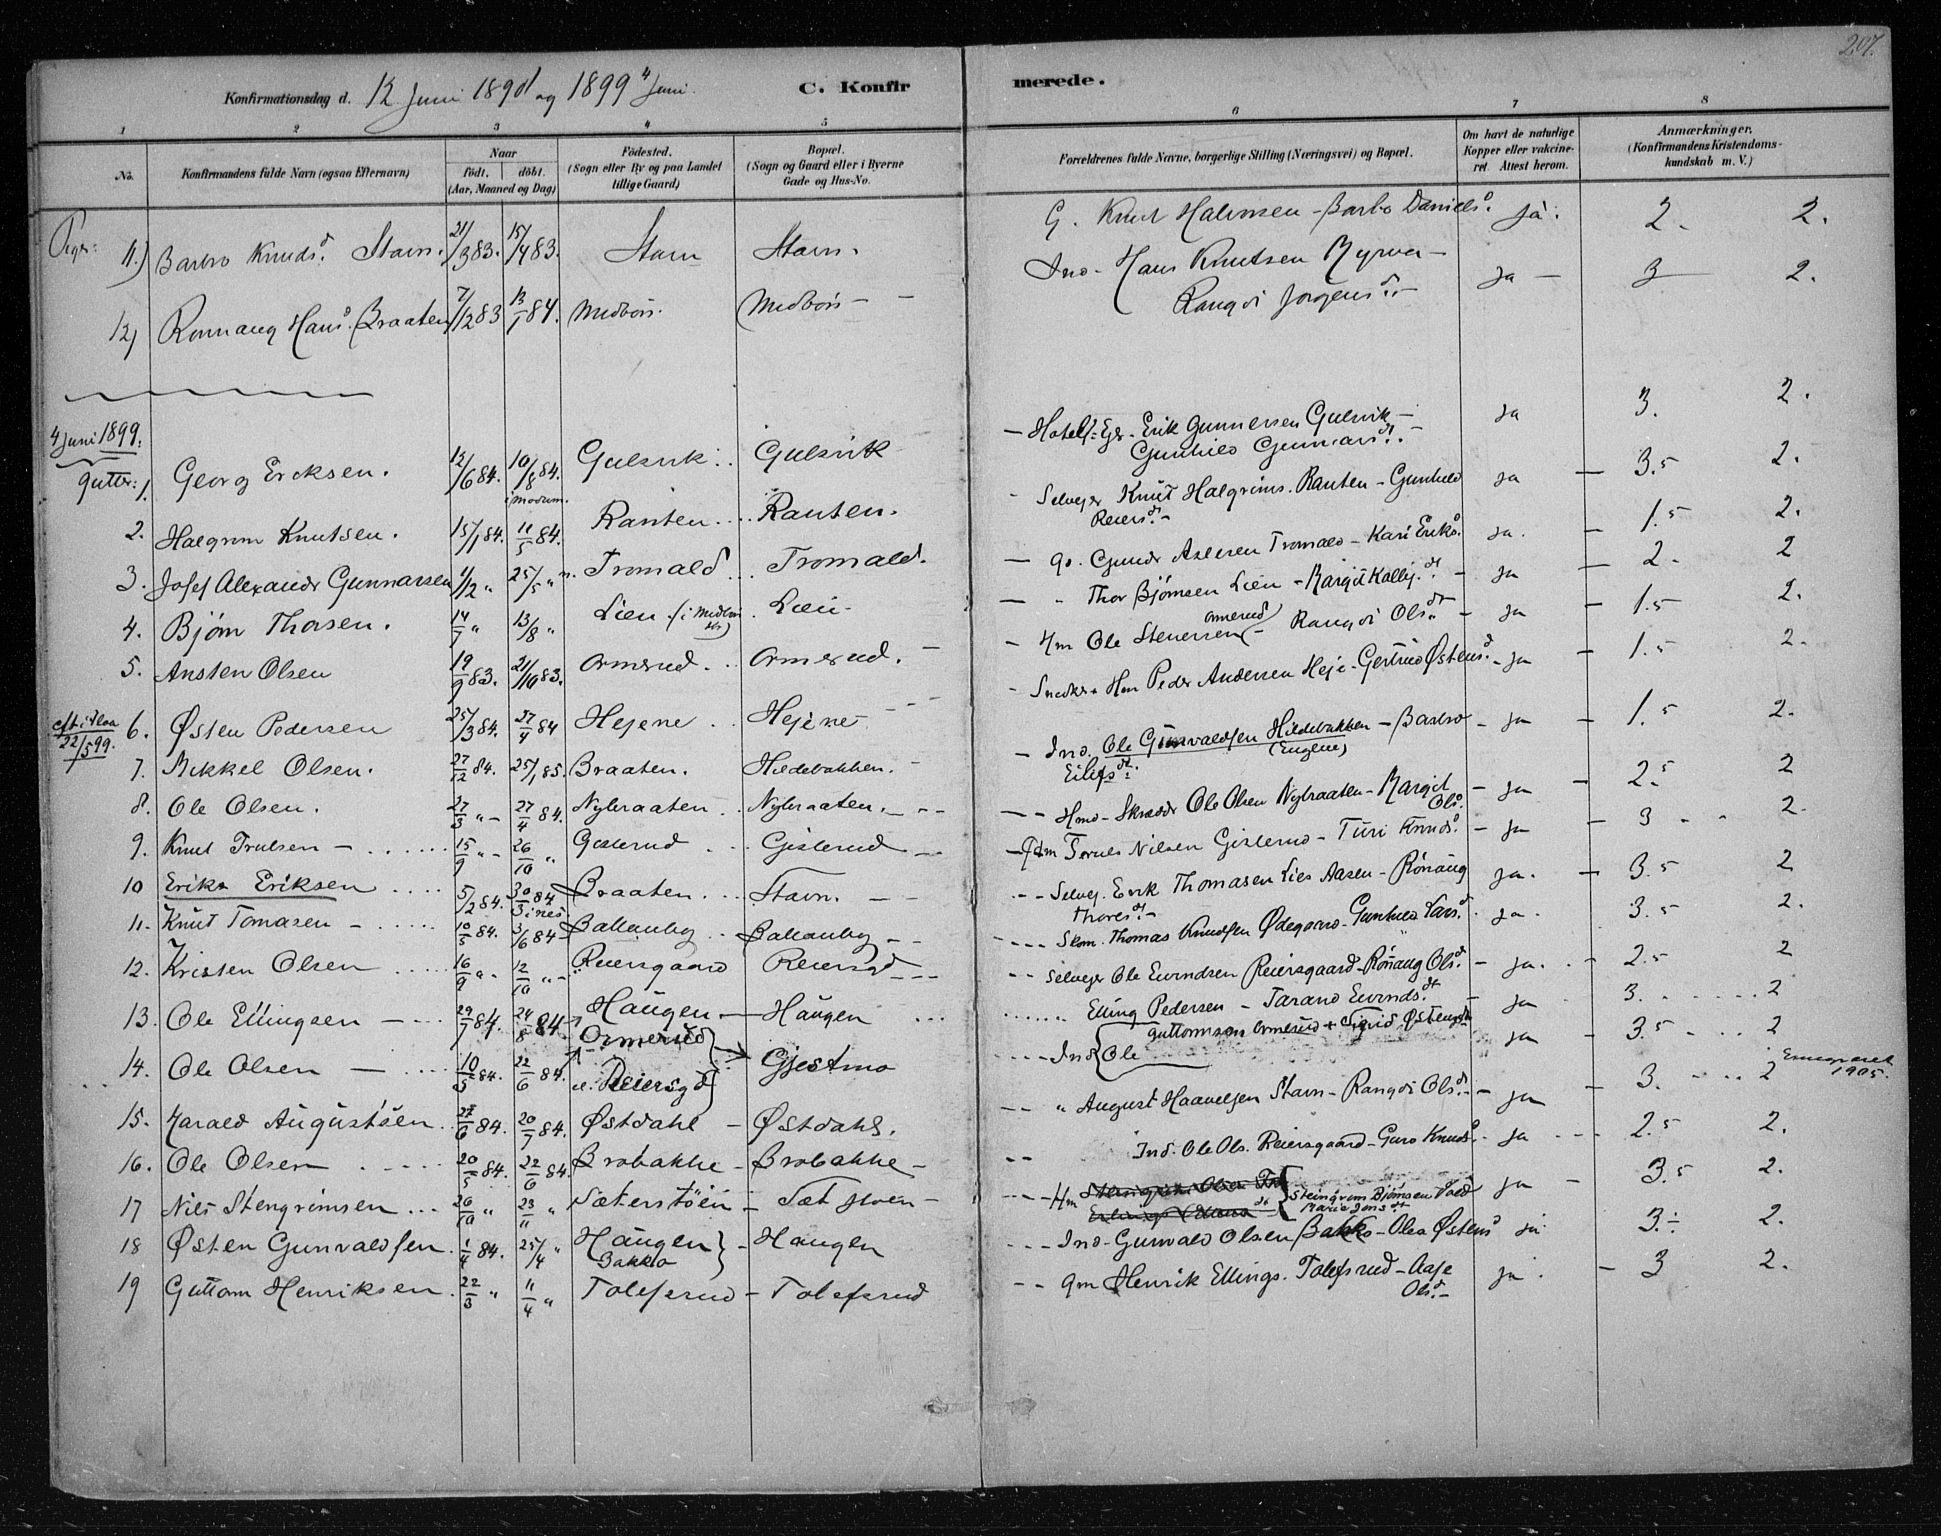 207.
Konfirmationsdag d. 12 Juni 1898 og 1899 4 Juni. C. Konfirmerede.
1 2 3 4 5 6 7 8
No. Konfirmandens fulde Navn (ogsaa Efternavn) Naar født. døbt. (Aar, Maaned og Dag) Fødested. (Sogn eller By og paa Landet tillige Gaard) Bopæl. (Sogn og Gaard eller i Byerne Gade og Hus-No. Forældrenes fulde Navne, borgerlige Stilling (Næringsvei) og Bopæl. Om havt de naturlige Kopper eller vakcineret. Attest herom. Anmærkninger. (Konfirmandens Kristendomskundskab m. V.)
Piger: 11.) Barbro Knudsd. Stavn. 21/3 83. 15/4 83. Stavn Stavn. G. Knut Halvorsen - Barbo Danielsd. ja. 2. 2.
12) Ronnaug Hansd. Braaten 7/12 83 13/1 84. Medbøn. Medbøn - - Ind. Hans Knutsen Myrer - Rangdi Jørgensd. - ja - 3 2.
4 Juni 1899.
Gutter: 1. Georg Ericksen. 12/6 84. 10/8 84. i Modum. Gulsvik .. Gulsvik - Hotel-Ejer. Erik Gunnersen Gulsvik - Gunhild Gunnarsd. - ja 3. 2.
2. Halgrim Knutsen. 15/1 84. 11/5 84. Ranten .... Ranten. - Selvejer Knut Halgrims. Ranten - Gunhild Reiersd. - ja - 3.5 2.
3. Josef Alexander Gunnarsen 1/2 " 25/5 " Tromald .. Tromald. - g. Gunder Aslesen Tromald - Kari Eriksd. ja. - 1.5 2.
4. Bjørn Thorsen. 14/7 " 13/8 " Lien (i Medbøn . Lien - - " Thor Bjørnsen Lien - Margit Kolbj.d. - ja - 2. 2
5. Ansten Olsen 19/9 83. 21/10 83. Ormerud . . Ormerud. - - Hm Ole Stenersen Ormerud - Rangdi Olsd. - ja - 1.5 2.
22/5 99. 6. Østen Pedersen 25/3 84. 27/4 84 Hejene . . Hejene - - Snedker Hm Peder Andersen Heje - Gertrud Østensd. - ja - 1.5 2.
7. Mikkel Olsen. 27/12 84. 25/1 85. Braaten. Hildebakken. - - Ind. Ole Gunvaldsen Hildebakken - Barbro (Eugene) Eilefsdt. - ja - 1.5 2.
8. Ole Olsen. 27/3 " - 27/4 84. Nybraaten . . Nybraaten. - - - - Hmd - Skrædder Ole Olsen Nybraaten - Margit Olsd. - ja - 2.5 2
9. Knut Trulsen - ...... 15/9 " - 26/10 " Gislerud . .. Gislerud - Trules Nilsen Gislerud - Turi Knudsd. - ja - 3 . . 2.
10 Erik Eriksen .... 5/2 84. 30/3 84 i nes. Braaten. .. Stavn. - - - - Selvej. Erik Thomasen Lies Aasen - Rönaug Thoresd. - ja. - 3.5 2
11. Knut Tomasen - ..... 10/5 84. 3/6 84 Bakkanby . . Bakkanby - - .... Skom. Thomas Knudsen Ødegaard - Gunhild Larsd. ja. 3.5 2.
12. Kristen Olsen ..... 16/9 " - 12/10 " - Reiersgaard Reiersgd - - - - Selvejer Ole Evindsen Reiersgaard - Rönaug Olsd. - ja. - . 2.5 2
13. Ole Ellingsen - ... 29/7 84. 24/8 84. Haugen - Haugen ... ...... Elling Pedersen - Tarand Evindsdt. - ja 3. ...... 2
14. Ole Olsen - .... 10/5 84. 22/6 84. Ormerud Reiersgd } Gjestmo .... Ind { Ole Guttormsen Ormerud + Sigrid Østensdt ja - 3.5 ... 2
15. Harald Augustsen .. 27/6 84. 20/7 84. Østdahl - Østdahl. - - " August Haavelsen Stavn - Rangdi Olsd. - ja - 3. ... 2 Emegreret 1905.
16. Ole Olsen . .... 20/5 84. 22/6 84. Brobakke - Brobakke - - - Ind. Ole Ols. Reiersgaard - Guro Knudsd. - ja ... 2.5 2.
17 Nils Stengrimsen ... 26/10 " 23/11 " Sæterstøen - Sæt støen - .... Hm { Steingrim Bjørnsen Marie Jensdt ja - 3.5 2.
18 Østen Gunvaldsen . 1/4 84. 25/4 " Haugen Bakko } - Haugen ... Ind - Gunvald Olsen Bakko - Olea Østensd ja. 3.÷ 2.
19 Guttorm Henriksen . 22/3 " 11/4 " Tolefsrud - Tolefsrud - - gm Henrik Ellings. Tolefsrud - Aase Olsd. - ja . - 3 2.